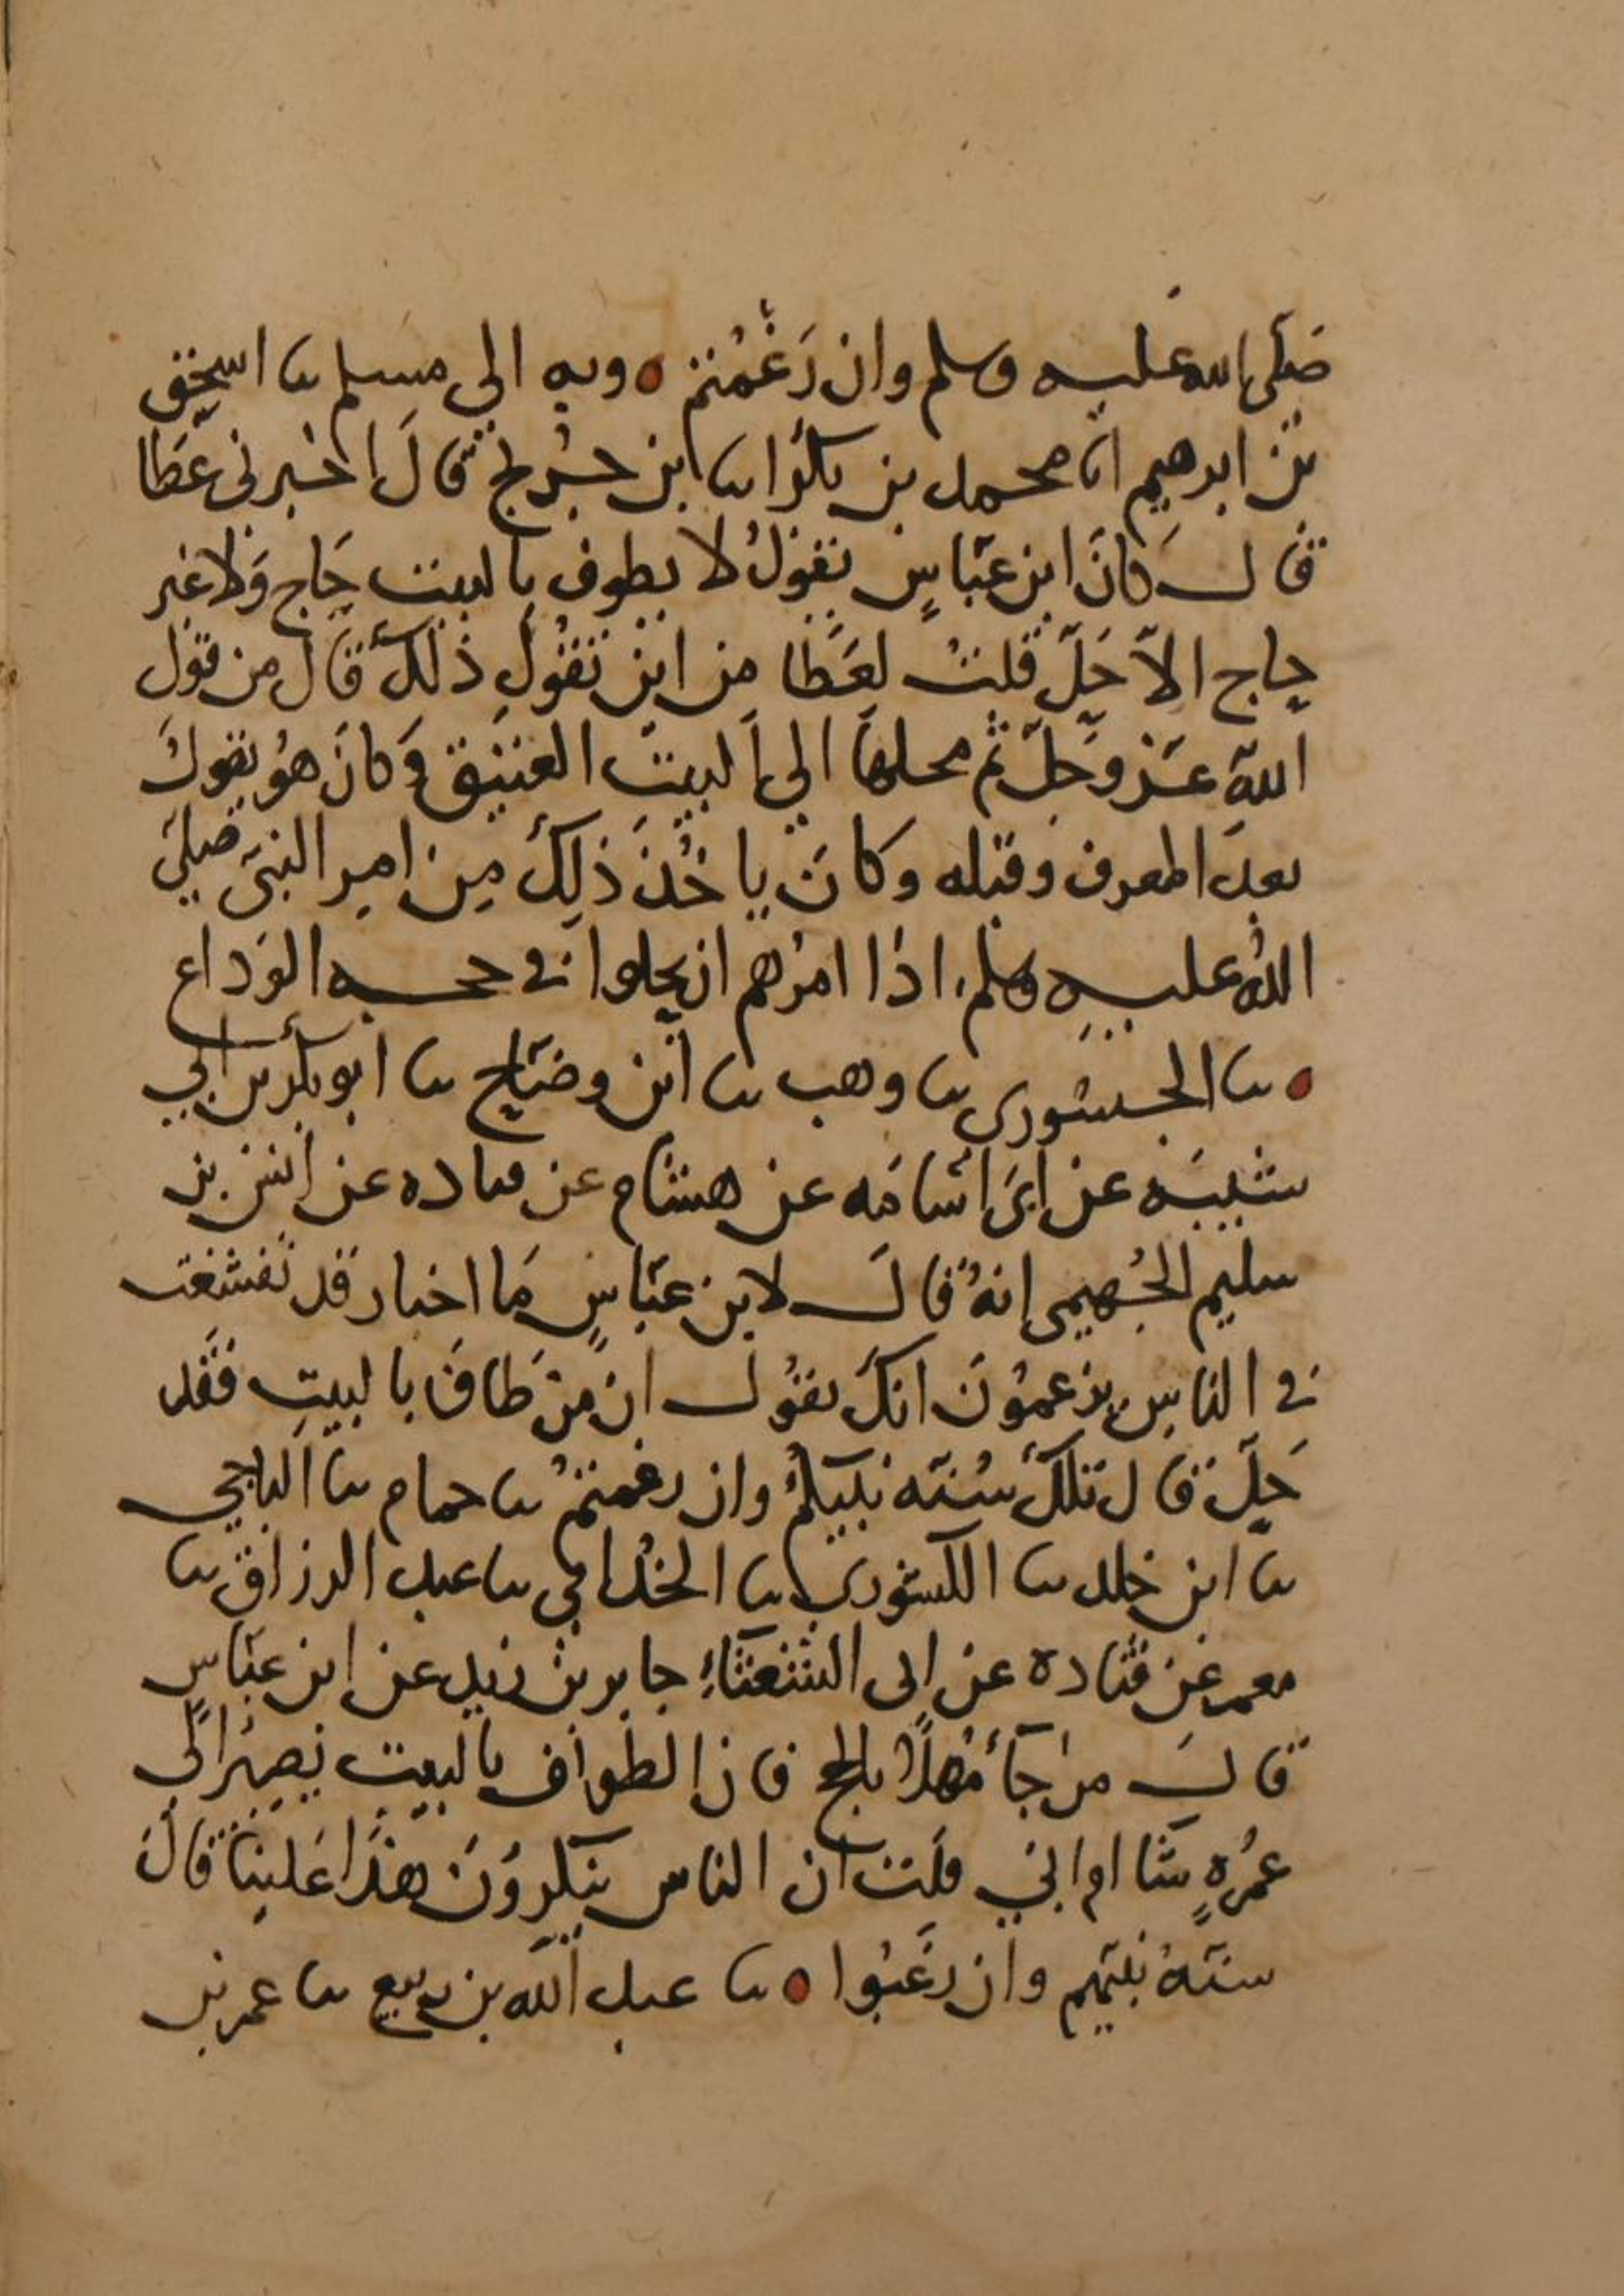 صَلّى الله عليه وسلم وان رَغَمْتم ٥ وبه الى مسلم نا اسحٰق
بن ابرهيم انا محمد بن بكر انا ابن جُرَيج قَالَ اخبرني عَطا
قالَ كانَ ابن عَبّاسٍ يَقولُ لا يطوف بالبيت حَاج وَلا غير
حاج الاّ حَلّ قلتُ لعَطَا من اين تقُول ذلكَ قَال من قول
اللهِ عَزّ وجَلّ ثم محلها الى البيت العتيق وَكانَ هُو يقول
بعدَ المعرف وقبله وكانَ ياخُذ ذلِكَ مِن امر النبيّ صَلّى
اللهُ عليه وسلم اذا امرهم ان يحلوا في حجه الوَداع
٥ نا الجسوري نا وهب نا ابن وضّاح نا ابو بكر بن ابي
شيبَه عن ابي اُسَامَه عن هشام عن قتاده عن انس بن
سليم الجُهيمى انهُ قالَ لابن عَبّاسٍ مَا اخبار قد تفشغت
في الناس يزعمُونَ انكَ تقُول ان مَن طَافَ بالبيتِ فقَد
حَلّ قال تلكَ سُنّه نبيكمْ وان رغمتمْ نا حمام نا الباجي
نا ابن خلد نا الكشوري نا الحُذافي نا عبد الرزاق نا
معمر عَن قتاده عن ابى الشعثاءِ جابر بن زيد عن ابن عبّاسٍ
قالَ من جَآءَ مُهلّاً بالحج فان الطواف بالبيت يَصِيرُ الى
عُمْرهٍ شَا ام ابي قلتُ ان الناس ينكرونَ هذَا عَلينَا قَالَ
سنّهُ نبيّهم وان رَغَبُوا ٥ نا عبد الله بن ربيع نا عمر بن